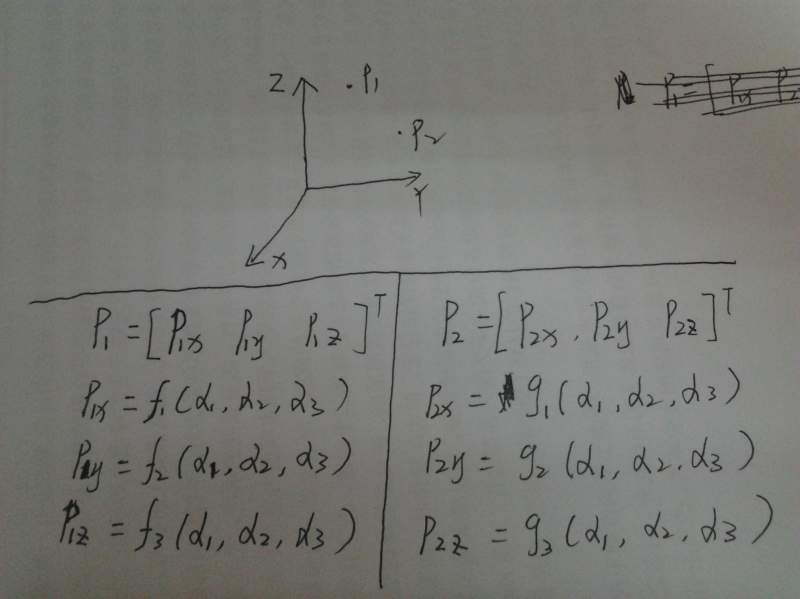 Z
P1
P2
Y
X
P1 = [P1x P1y P1z]^T
P1x = f1(α1, α2, α3)
P1y = f2(α1, α2, α3)
P1z = f3(α1, α2, α3)
P2 = [P2x, P2y P2z]^T
P2x = g1(α1, α2, α3)
P2y = g2(α1, α2, α3)
P2z = g3(α1, α2, α3)